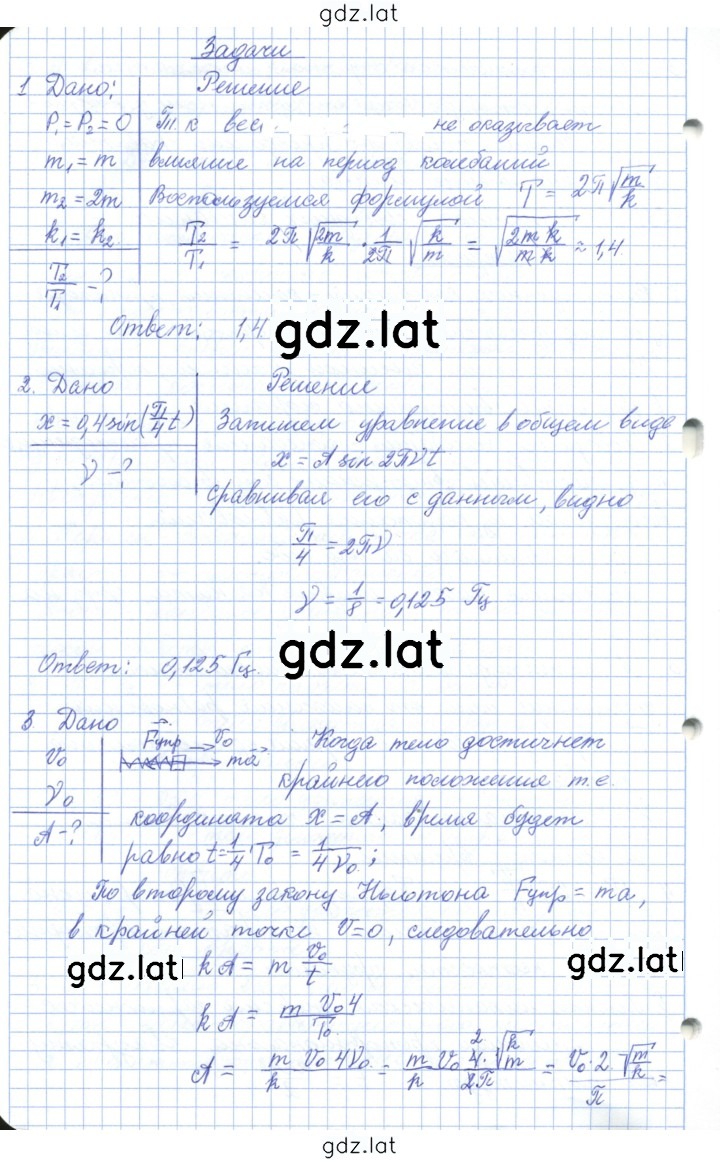 gdz.lat
Задачи
1 Дано: Решение
P₁ = P₂ = 0 Т. к вес не оказывает
m₁ = m влияние на период колебаний
m₂ = 2m Воспользуемся формулой T = 2π√(m/k)
k₁ = k₂ T₂/T₁ = 2π√(2m/k) · 1/2π √(k/m) = √(2mk/mk) ≈ 1,4
T₂/T₁ - ?
Ответ: 1,4 gdz.lat
2. Дано Решение
x = 0,4 sin(π/4 t) Запишем уравнение в общем виде
ν - ? x = A sin 2πνt
сравнивая его с данным, видно
π/4 = 2πν
ν = 1/8 = 0,125 Гц
Ответ: 0,125 Гц. gdz.lat
3 Дано Fупр → v₀ Когда тело достигнет
v₀ ma крайнего положения т.е.
ν₀ координата x = A, время будет
A - ? равно t = 1/4 T₀ = 1/4ν₀;
По второму закону Ньютона Fупр = ma,
в крайней точке v = 0, следовательно
gdz.lat kA = m v₀/t gdz.lat
kA = m v₀4/T₀
A = m v₀ 4ν₀/k = m v₀ 4·√(k/m)/k 2π = v₀·2 √(m/k)/π =
gdz.lat